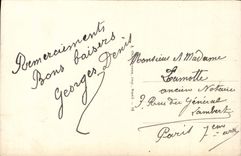 Remerciements
Bons baisers
Georges Denis
Monsieur & Madame
Lamotte
ancien Notaire
9. Rue du Général
Lambert
Paris 7em